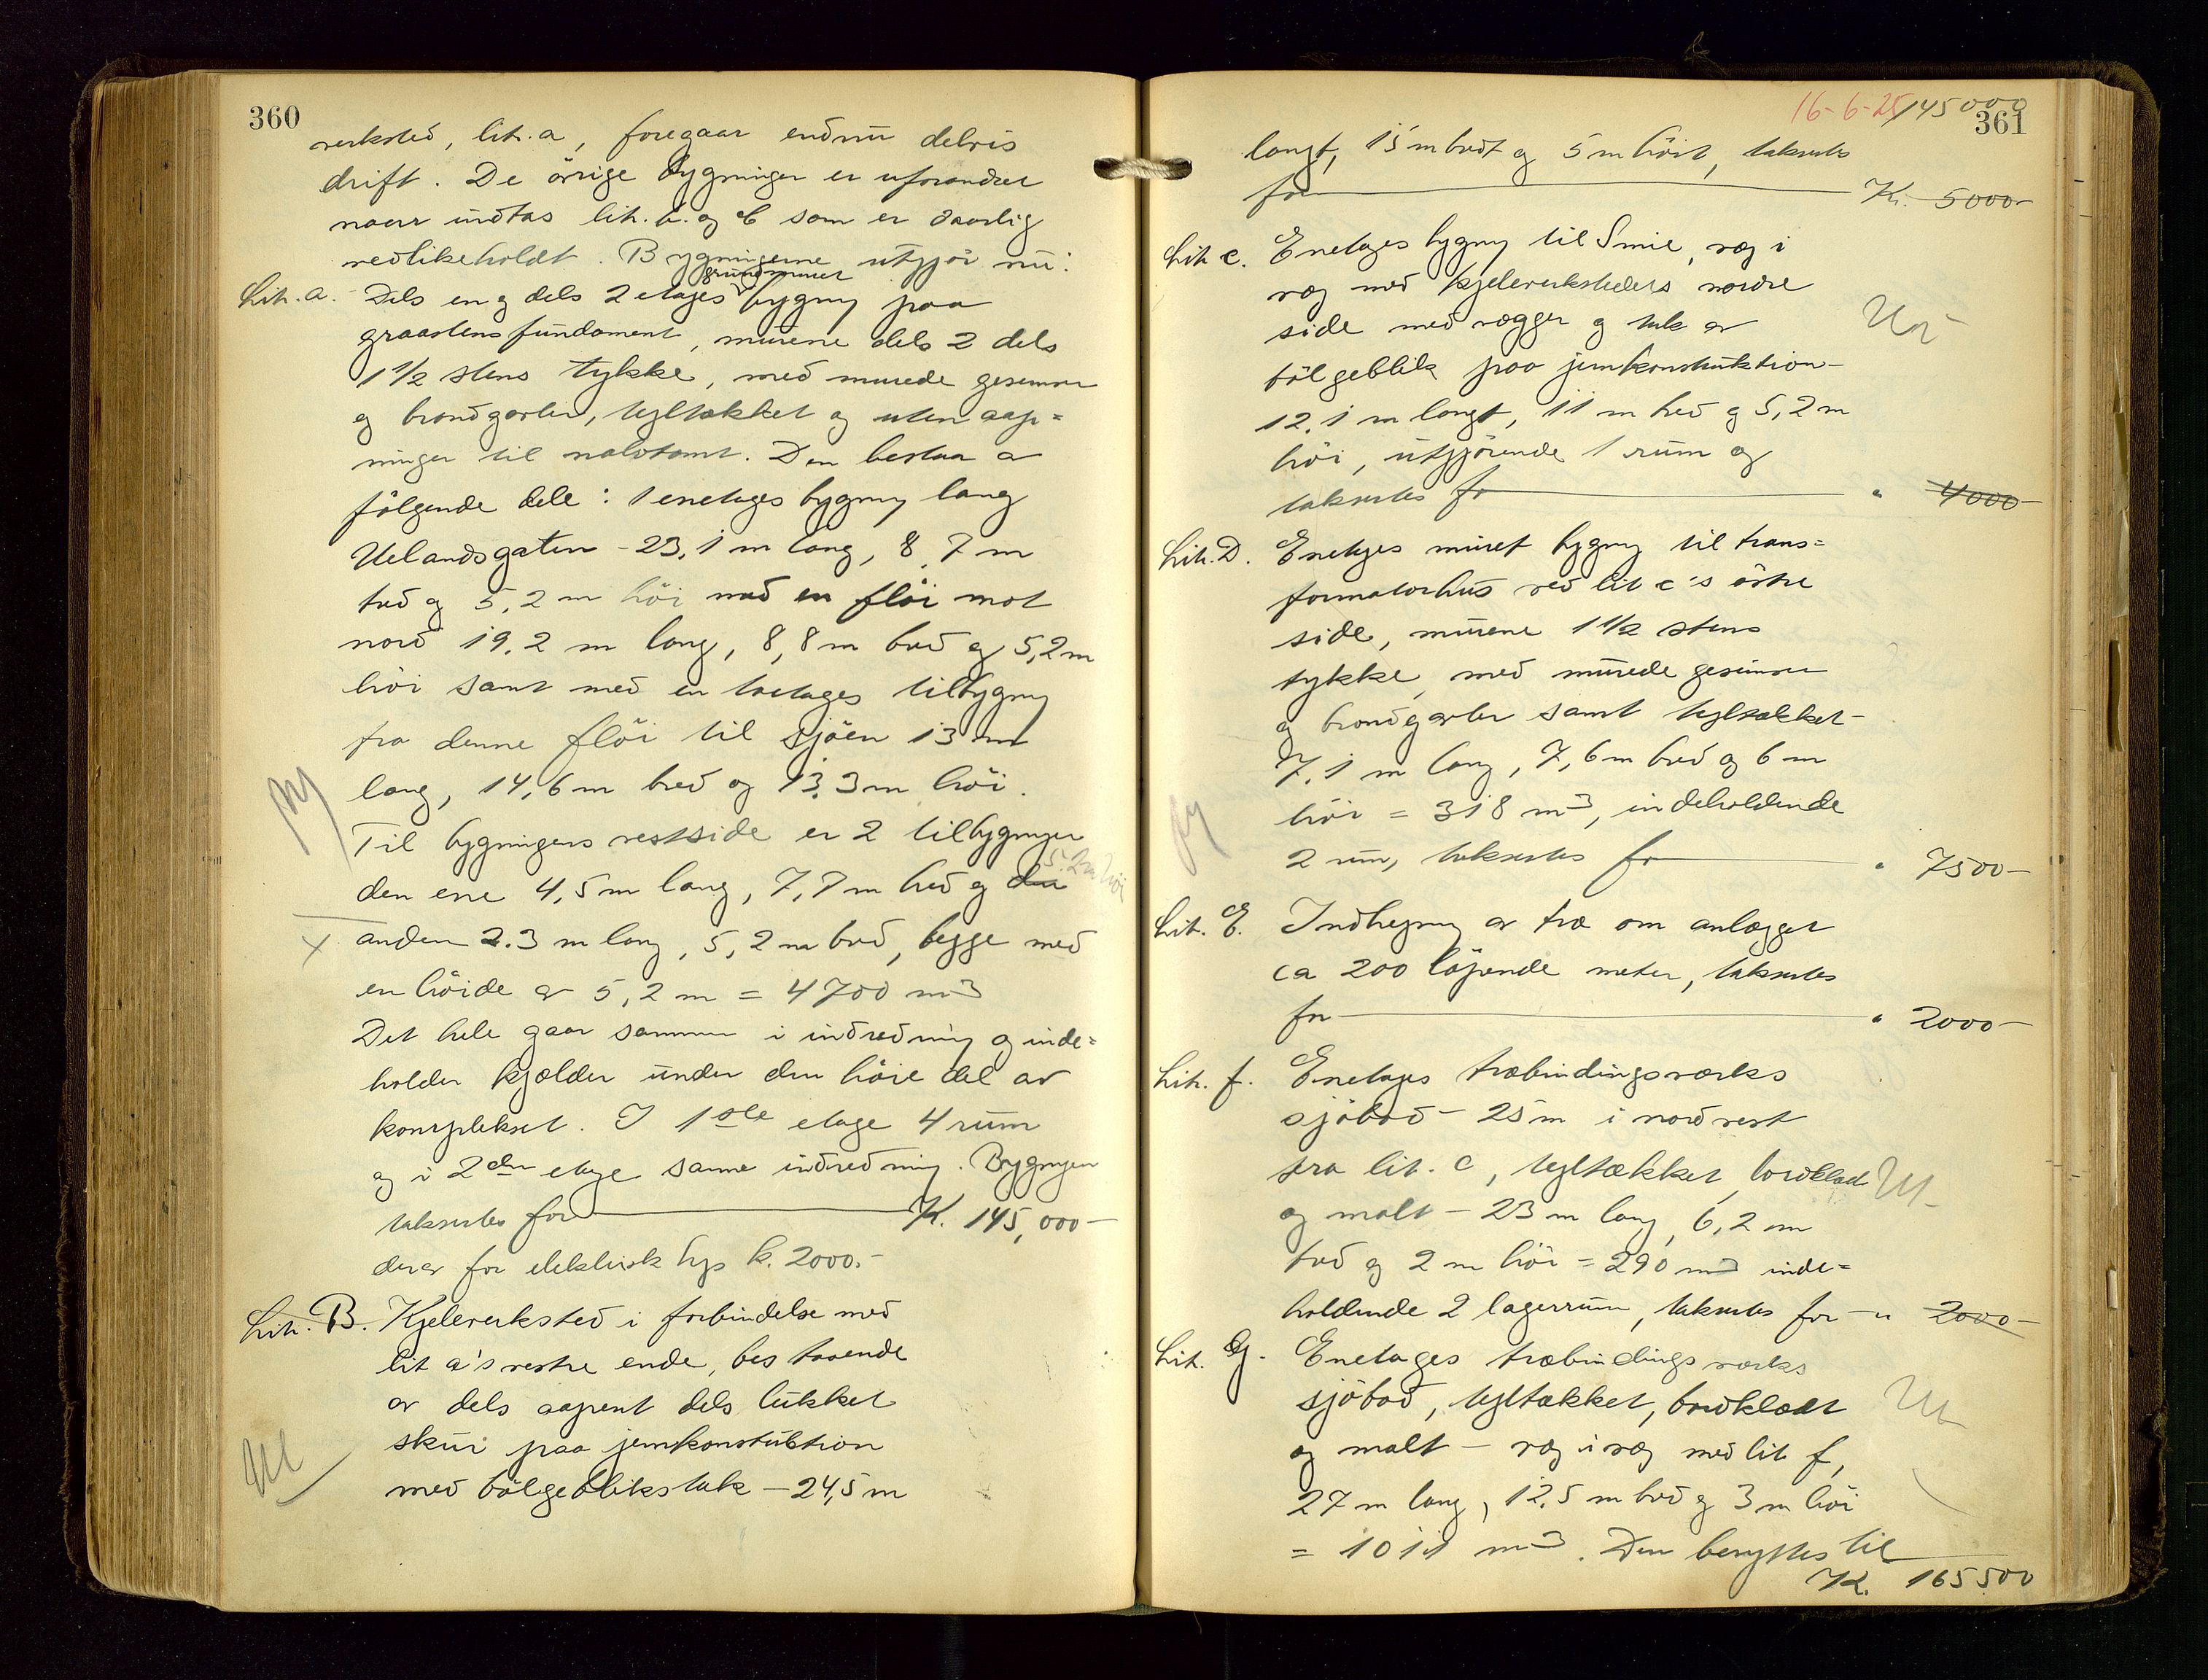 360
verksted, lit. a, foregaar endnu delvis
drift. De övrige bygninger er uforandret
naar undtas lit. b. og C som er daarlig
vedlikeholdt. Bygningerne utgjör nu:
grundmuret
Lit. a. Dels en og dels 2 etages bygning paa
graastens fundament, murene dels 2 dels
1 1/2 stens tykke, med murede gesimser
og brandgavler, tegltækket og uten aap=
ninger til nabotomt. Den bestaar av
følgende dele: 1 enetages bygning langs
Uelandsgaten - 23,1 m lang, 8,7 m
bred og 5,2 m höi med en flöi mot
nord 19,2 m lang, 8,8 m bred og 5,2 m
höi samt med en toetages tilbygning
fra denne flöi til sjöen 13 m
lang, 14,6 m bred og 13,3 m höi.
Til bygningens vestside er 2 tilbygninger
5.2 m höi
den ene 4,5 m lang, 7,7 m bred og den
x anden 2.3 m lang, 5,2 m bred, begge med
en höide av 5,2 m = 4700 m3
Det hele gaar sammen i indredning og inde=
holder kjælder under den höie del av
komplekset. I 1ste etage 4 rum
og i 2den etage samme indredning. Bygningen
taksertes for K. 145,000-
derav for elektrisk lys k. 2000.-
Lit. B. Kjeleverksted i forbindelse med
lit a's vestre ende, bestaaende
av dels aapent dels lukket
skur paa jernkonstuktion
med bölgeblikstak - 24,5 m
16-6-25 145000
361
langt, 15 m bredt og 5 m höit, taksertes
for Kr. 5000-
Lit c. Enetages bygning til Smie, væg i
væg med kjeleverkstedets nordre
side med vægger og tak av
bölgeblik paa jernkonstruktion-
12,1 m langt, 11 m bred og 5,2 m
höi, utgjörende 1 rum og
taksertes for " 4000-
Lit. D. Enetages muret bygning til trans=
formatorhus ved lit c's östre
side, murene 1 1/2 stens
tykke, med murede gesimser
og brandgavler samt tegltækket-
7,1 m lang, 7,6 m bred og 6 m
höi = 318 m3, indeholdende
2 rum, taksertes for " 7500-
Lit. E. Indhegning av træ om anlægget
ca 200 löpende meter, taksertes
for " 2000-
Lit. f. Enetages træbindingsverks
sjöbod - 25 m i nordvest
fra lit. C, tegltækket, bordklæd
og malt - 23 m lang, 6,2 m
bred og 2 m höi = 290 m3 inde=
holdende 2 lagerrum, taksertes for - " 2000-
Lit. G. Enetages træbindings verks
sjöbod, tegltækket, bordklædt
og malt - væg i væg med lit f,
27 m lang, 12,5 m bred og 3 m höi
= 1011 m3. Den benyttes til
K. 165500